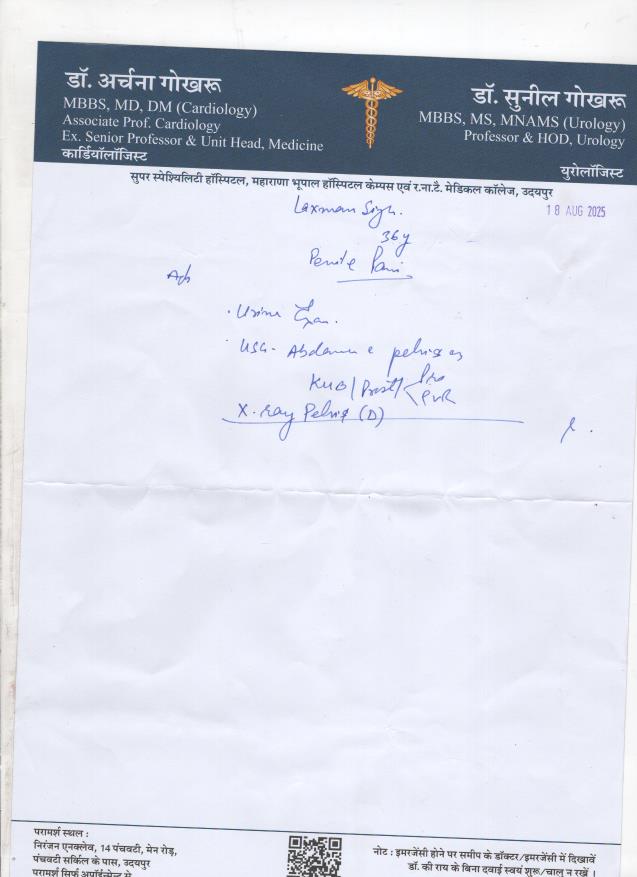 डॉ. अर्चना गोखरू
MBBS, MD, DM (Cardiology)
Associate Prof. Cardiology
Ex. Senior Professor & Unit Head, Medicine
कार्डियॉलॉजिस्ट
डॉ. सुनील गोखरू
MBBS, MS, MNAMS (Urology)
Professor & HOD, Urology
युरोलॉजिस्ट
सुपर स्पेश्यिलिटी हॉस्पिटल, महाराणा भूपाल हॉस्पिटल केम्पस एवं र.ना.टै. मेडिकल कॉलेज, उदयपुर
18 AUG 2025
Laxman Singh.
36y
Penile Pain
Urine
USG- Abdomen pelvis
KUB / Prost / Pre
PVR
X-ray Pelvis (D)
परामर्श स्थल :
निरंजन एनक्लेव, 14 पंचवटी, मेन रोड़,
पंचवटी सर्किल के पास, उदयपुर
परामर्श सिर्फ अपॉईन्मेन्ट से
नोट : इमरजेंसी होने पर समीप के डॉक्टर/इमरजेंसी में दिखावें
डॉ. की राय के बिना दवाई स्वयं शुरू/चालू न रखें ।